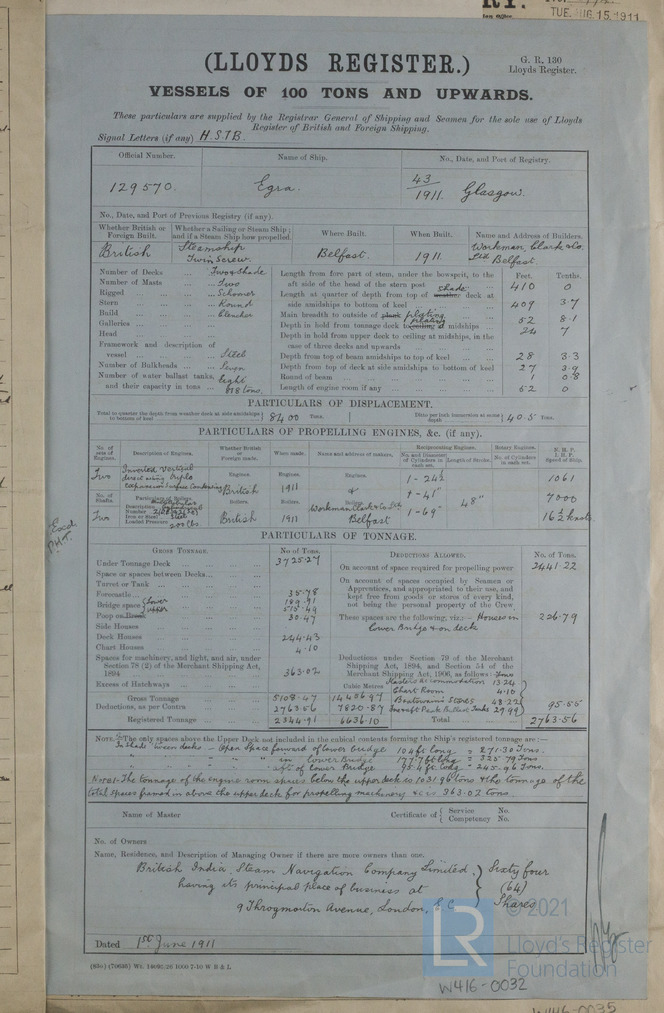 RY.
TUE. AUG. 15. 1911
(LLOYDS REGISTER.)
G. R. 130
Lloyds Register.
VESSELS OF 100 TONS AND UPWARDS.
These particulars are supplied by the Registrar General of Shipping and Seamen for the sole use of Lloyds
Register of British and Foreign Shipping.
Signal Letters (if any) H.S.T.B.
Official Number. Name of Ship. No., Date, and Port of Registry.
129570. Egra. 43/1911. Glasgow.
No., Date, and Port of Previous Registry (if any).
Whether British or Foreign Built. Whether a Sailing or Steam Ship; and if a Steam Ship how propelled. Where Built. When Built. Name and Address of Builders.
British Steamship Twin Screw. Belfast. 1911 Workman, Clark & Co. Ltd Belfast.
Number of Decks Two & Shade
Number of Masts Two
Rigged Schooner
Stern Round
Build Clencher
Galleries
Head
Framework and description of
vessel Steel
Number of Bulkheads Seven
Number of water ballast tanks, eight
and their capacity in tons 818 tons.
Feet. Tenths.
Length from fore part of stem, under the bowsprit, to the
aft side of the head of the stern post 410 0
Length at quarter of depth from top of shade deck at
side amidships to bottom of keel 409 3.7
Main breadth to outside of plating 52 8.1
Depth in hold from tonnage deck to ceiling at midships 24 7
Depth in hold from upper deck to ceiling at midships, in the
case of three decks and upwards
Depth from top of beam amidships to top of keel 28 3.3
Depth from top of deck at side amidships to bottom of keel 27 3.9
Round of beam 1 0.8
Length of engine room if any 52 0
PARTICULARS OF DISPLACEMENT.
Total to quarter the depth from weather deck at side amidships to bottom of keel 8400 Tons. Ditto per inch immersion at same depth 40.5 Tons.
PARTICULARS OF PROPELLING ENGINES, &c. (if any).
No. of sets of Engines. Description of Engines. Whether British or Foreign made. When made. Name and address of makers. Reciprocating Engines. Rotary Engines. N.H.P. I.H.P. Speed of Ship.
No. and Diameter of Cylinders in each set. Length of Stroke. No. of Cylinders in each set.
Two Inverted Vertical direct acting Triple expansion Surface Condensing
Engines. British Engines. 1911 Engines.
1 - 24½ 1061
No. of Shafts. Particulars of Boilers.
1 - 41" 48" 7000
Two Description
Number
Iron or Steel Steel
Loaded Pressure 200 lbs
Boilers. British Boilers. 1911 Boilers. Workman Clark & Co Ltd Belfast
1 - 69" 16½ knots
PARTICULARS OF TONNAGE.
GROSS TONNAGE. No of Tons.
Under Tonnage Deck 3725.27
Space or spaces between Decks
Turret or Tank
Forecastle 35.78
Bridge space Lower 189.91
Upper 515.49
Poop or Break 30.47
Side Houses
Deck Houses 244.43
Chart Houses 4.10
Spaces for machinery, and light, and air, under
Section 78 (2) of the Merchant Shipping Act,
1894 363.02
Excess of Hatchways
Cubic Metres
Gross Tonnage 5108.47 14456.97
Deductions, as per Contra 2763.56 7820.87
Registered Tonnage 2344.91 6636.10
DEDUCTIONS ALLOWED. No. of Tons.
On account of space required for propelling power 2441.22
On account of spaces occupied by Seamen or
Apprentices, and appropriated to their use, and
kept free from goods or stores of every kind,
not being the personal property of the Crew
These spaces are the following, viz.:- Houses in 226.79
lower Bridge & on deck
Deductions under Section 79 of the Merchant
Shipping Act, 1894, and Section 54 of the
Merchant Shipping Act, 1906, as follows: Tons
Masters Accommodation 13.24
Chart Room 4.10
Boatswain's Stores 48.22
Fore & aft Peak Ballast Tanks 29.99
95.55
Total 2763.56
NOTE.—The only spaces above the Upper Deck not included in the cubical contents forming the Ship's registered tonnage are:—
In Shade 'tween decks - Open Space forward of lower bridge 104 ft long = 271.30 Tons.
" " " " in lower Bridge 177.7 ft long = 325.79 Tons
" " " aft of lower Bridge 95.1 ft long = 245.96 Tons.
NOTE 1. The tonnage of the engine room spaces below the upper deck is 1031.96 tons & the tonnage of the
total spaces framed in above the upper deck for propelling machinery &c is 363.02 tons.
Name of Master Certificate of Service No.
Competency No.
No. of Owners
Name, Residence, and Description of Managing Owner if there are more owners than one.
British India Steam Navigation Company Limited Sixty four
having its principal place of business at (64)
9 Throgmorton Avenue, London, E.C. Shares
Dated 1st June 1911
© 2021
LR
Lloyd's Register
Foundation
W416-0032
W416-0035